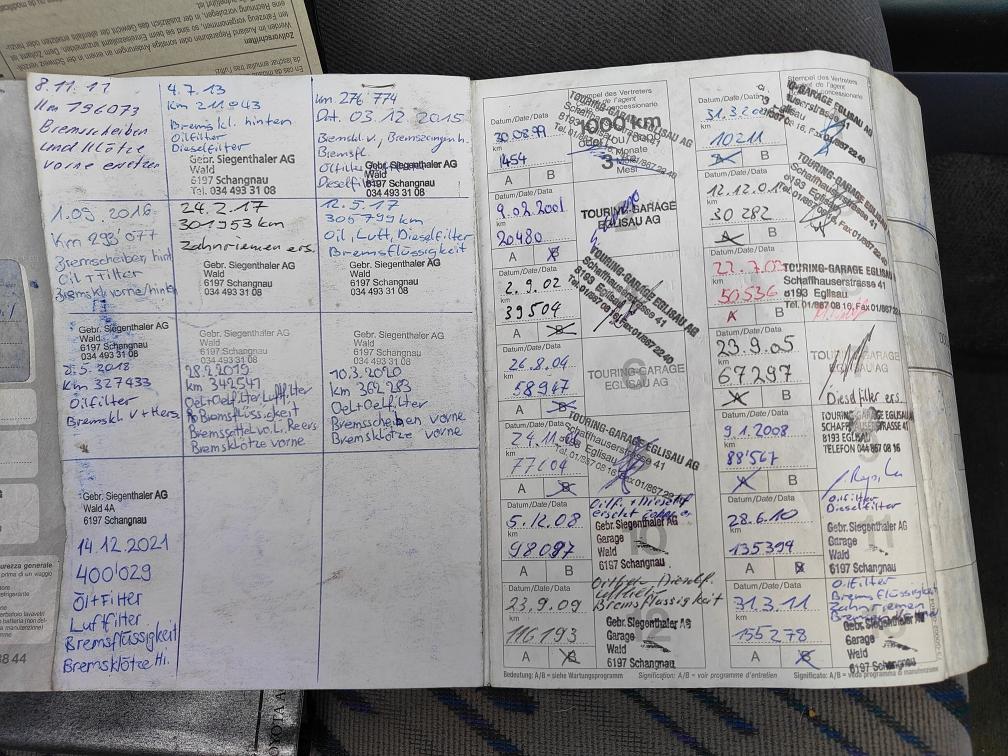 Zollvorschriften
8.11.12
Km 196073
Bremsscheiben
und Klötze
vorne ersetzen
4.7.13
Km 211043
Bremskl. hinten
Oilfilter
Dieselfilter
Gebr. Siegenthaler AG
Wald
6197 Schangnau
Tel. 034 493 31 08
km. 276 774
Dat. 03.12.2015
Bremskl. v,
Bremsfl.
Oilfilter
Dieselfilter
Gebr. Siegenthaler AG
Wald
6197 Schangnau
034 493 31 08
1.09.2016
Km 293'077
Bremscheiben, hint
Oil + Filter
Bremskl. vorne/hint
Gebr. Siegenthaler AG
Wald
6197 Schangnau
034 493 31 08
24.2.17
301953 km
Zahnriemen ers.
Gebr. Siegenthaler AG
Wald
6197 Schangnau
034 493 31 08
12.5.17
305799 km
Oil, Luft, Dieselfilter
Bremsflüssigkeit
Gebr. Siegenthaler AG
Wald
6197 Schangnau
034 493 31 08
5.2018
Km 327433
Oilfilter
Bremskl. V+Hers.
Gebr. Siegenthaler AG
Wald
6197 Schangnau
034 493 31 08
28.2.2019
km 342541
Oel+Oelfilter Luftfilter
Bremsflüssickeit
Bremssattel vo. L. Reers
Bremsklötze vorne
Gebr. Siegenthaler AG
Wald
6197 Schangnau
034 493 31 08
10.3.2020
km 362 283
Oel+Oelfilter
Bremsscheiben vorne
Bremsklötze vorne
Gebr. Siegenthaler AG
Wald 4A
6197 Schangnau
14.12.2021
400'029
Öl+Filter
Luftfilter
Bremsflüssigkeit
Bremsklötze Hi.
Datum/Date/Data
30.08.99
km
1454
A B
Stempel des Vertreters
de l'agent
concessionario
TOURING-GARAGE EGLISAU AG
1000 km
oder/ou/o
3 Monate
Mois
Mesi
Datum/Date/Data
31.3.200
km
10211
A B
Stempel des Vertreters
de l'agent
concessionario
Datum/Date/Data
9.02.2001
km
20480
A B
TOURING-GARAGE
EGLISAU AG
Datum/Date/Data
12.12.01
km
30 282
A B
TOURING-GARAGE EGLISAU AG
Schaffhauserstrasse 41
8193 Eglisau
Datum/Date/Data
2.9.02
km
39504
A B
TOURING-GARAGE EGLISAU AG
Schaffhauserstrasse 41
8193 Eglisau
Datum/Date/Data
22.7.03
km
50536
A B
TOURING-GARAGE EGLISAU
Schaffhauserstrasse 41
8193 Eglisau
Tel. 01/867 08 16, Fax 01/867 22 40
Datum/Date/Data
26.8.04
km
58947
A B
TOURING-GARAGE
EGLISAU AG
Datum/Date/Data
23.9.05
km
67297
A B
TOURING-GARAGE
EGLISAU AG
Dieselfilter ers.
Datum/Date/Data
24.11.06
km
77104
A B
TOURING-GARAGE EGLISAU AG
Schaffhauserstrasse 41
Datum/Date/Data
9.1.2008
km
88'567
A B
TOURING-GARAGE EGLISAU
SCHAFFHAUSERSTRASSE 41
8193 EGLISAU
TELEFON 044 867 08 16
Datum/Date/Data
5.12.08
km
98087
A B
Gebr. Siegenthaler AG
Garage
Wald
6197 Schangnau
Datum/Date/Data
28.6.10
km
135394
A B
Oilfilter
Dieselfilter
Gebr. Siegenthaler AG
Garage
Wald
6197 Schangnau
Datum/Date/Data
23.9.09
km
116 193
A B
Bremsflüssigkeit
Gebr. Siegenthaler AG
Garage
Wald
6197 Schangnau
12
Datum/Date/Data
31.3.11
km
155278
A B
Oilfilter
Bremsflüss.
Zahnriemen
Gebr. Siegenthaler AG
Garage
Wald
6197 Schangnau
Bedeutung: A/B = siehe Wartungsprogramm
Signification: A/B = voir programme d'entretien
Significato: A/B = vede programma di manutenzione